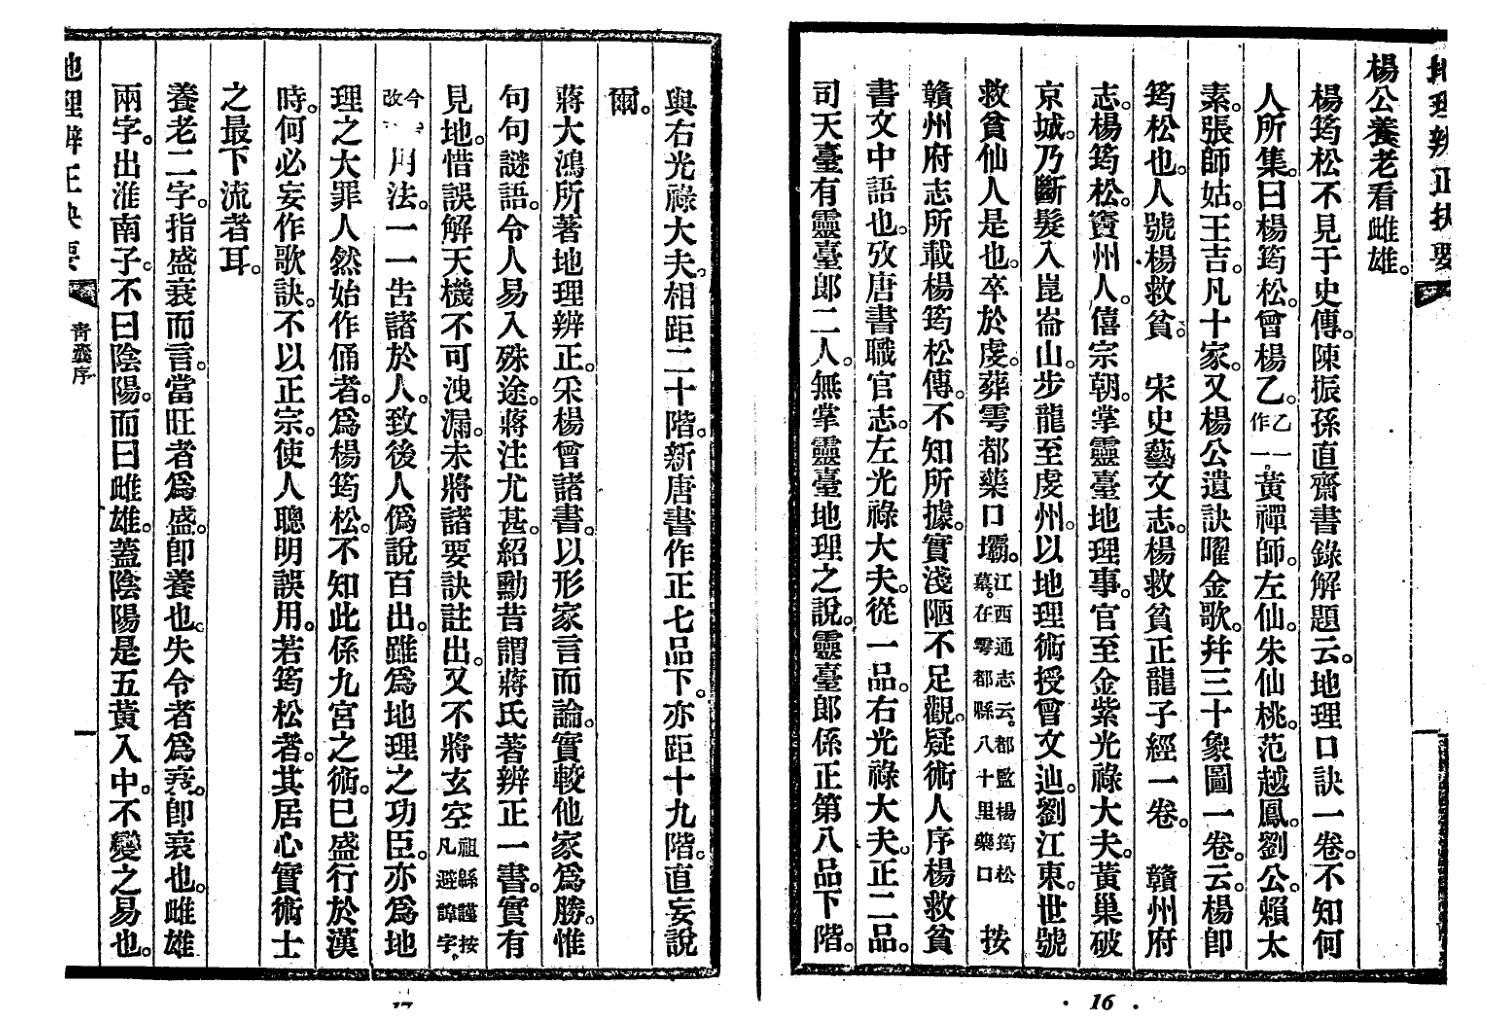 地理辨正抉要
楊公養老看雌雄。
楊筠松不見于史傳。陳振孫直齋書錄解題云。地理口訣一卷。不知何
人所集。曰楊筠松。曾楊乙。乙一作一。黃禪師。左仙。朱仙桃。范越鳳。劉公。賴太
素。張師姑。王吉。凡十家。又楊公遺訣曜金歌。幷三十象圖一卷。云。楊卽
筠松也。人號楊救貧。 宋史藝文志。楊救貧正龍子經一卷。 贛州府
志。楊筠松。竇州人。僖宗朝。掌靈臺地理事。官至金紫光祿大夫。黃巢破
京城。乃斷髮入崑崙山。步龍至虔州。以地理術授曾文辿。劉江東。世號
救貧仙人是也。卒於虔。葬雩都藥口壩。江西通志云。都監楊筠松墓。在雩都縣八十里藥口 按
贛州府志所載楊筠松傳。不知所據。實淺陋不足觀。疑術人序楊救貧
書文中語也。攷唐書職官志。左光祿大夫。從一品。右光祿大夫。正二品。
司天臺有靈臺郎二人。無掌靈臺地理之說。靈臺郎係正第八品下階。
16
與右光祿大夫。相距二十階。新唐書作正七品下。亦距十九階。直妄說
爾。
蔣大鴻所著地理辨正。采楊曾諸書。以形家言而論。實較他家爲勝。惟
句句謎語。令人易入殊途。蔣注尤甚。紹勳昔謂蔣氏著辨正一書。實有
見地。惜誤解天機不可洩漏。未將諸要訣註出。又不將玄空祖緜謹按凡避諱字。
今改用法。一一告諸於人。致後人僞說百出。雖爲地理之功臣。亦爲地
理之大罪人然始作俑者。爲楊筠松。不知此係九宮之術。已盛行於漢
時。何必妄作歌訣。不以正宗。使人聰明誤用。若筠松者。其居心實術士
之最下流者耳。
養老二字。指盛衰而言。當旺者爲盛。卽養也。失令者爲衰。卽衰也。雌雄
兩字。出淮南子。不曰陰陽。而曰雌雄。蓋陰陽是五黃入中。不變之易也。
地理辨正抉要
青囊序
一
17